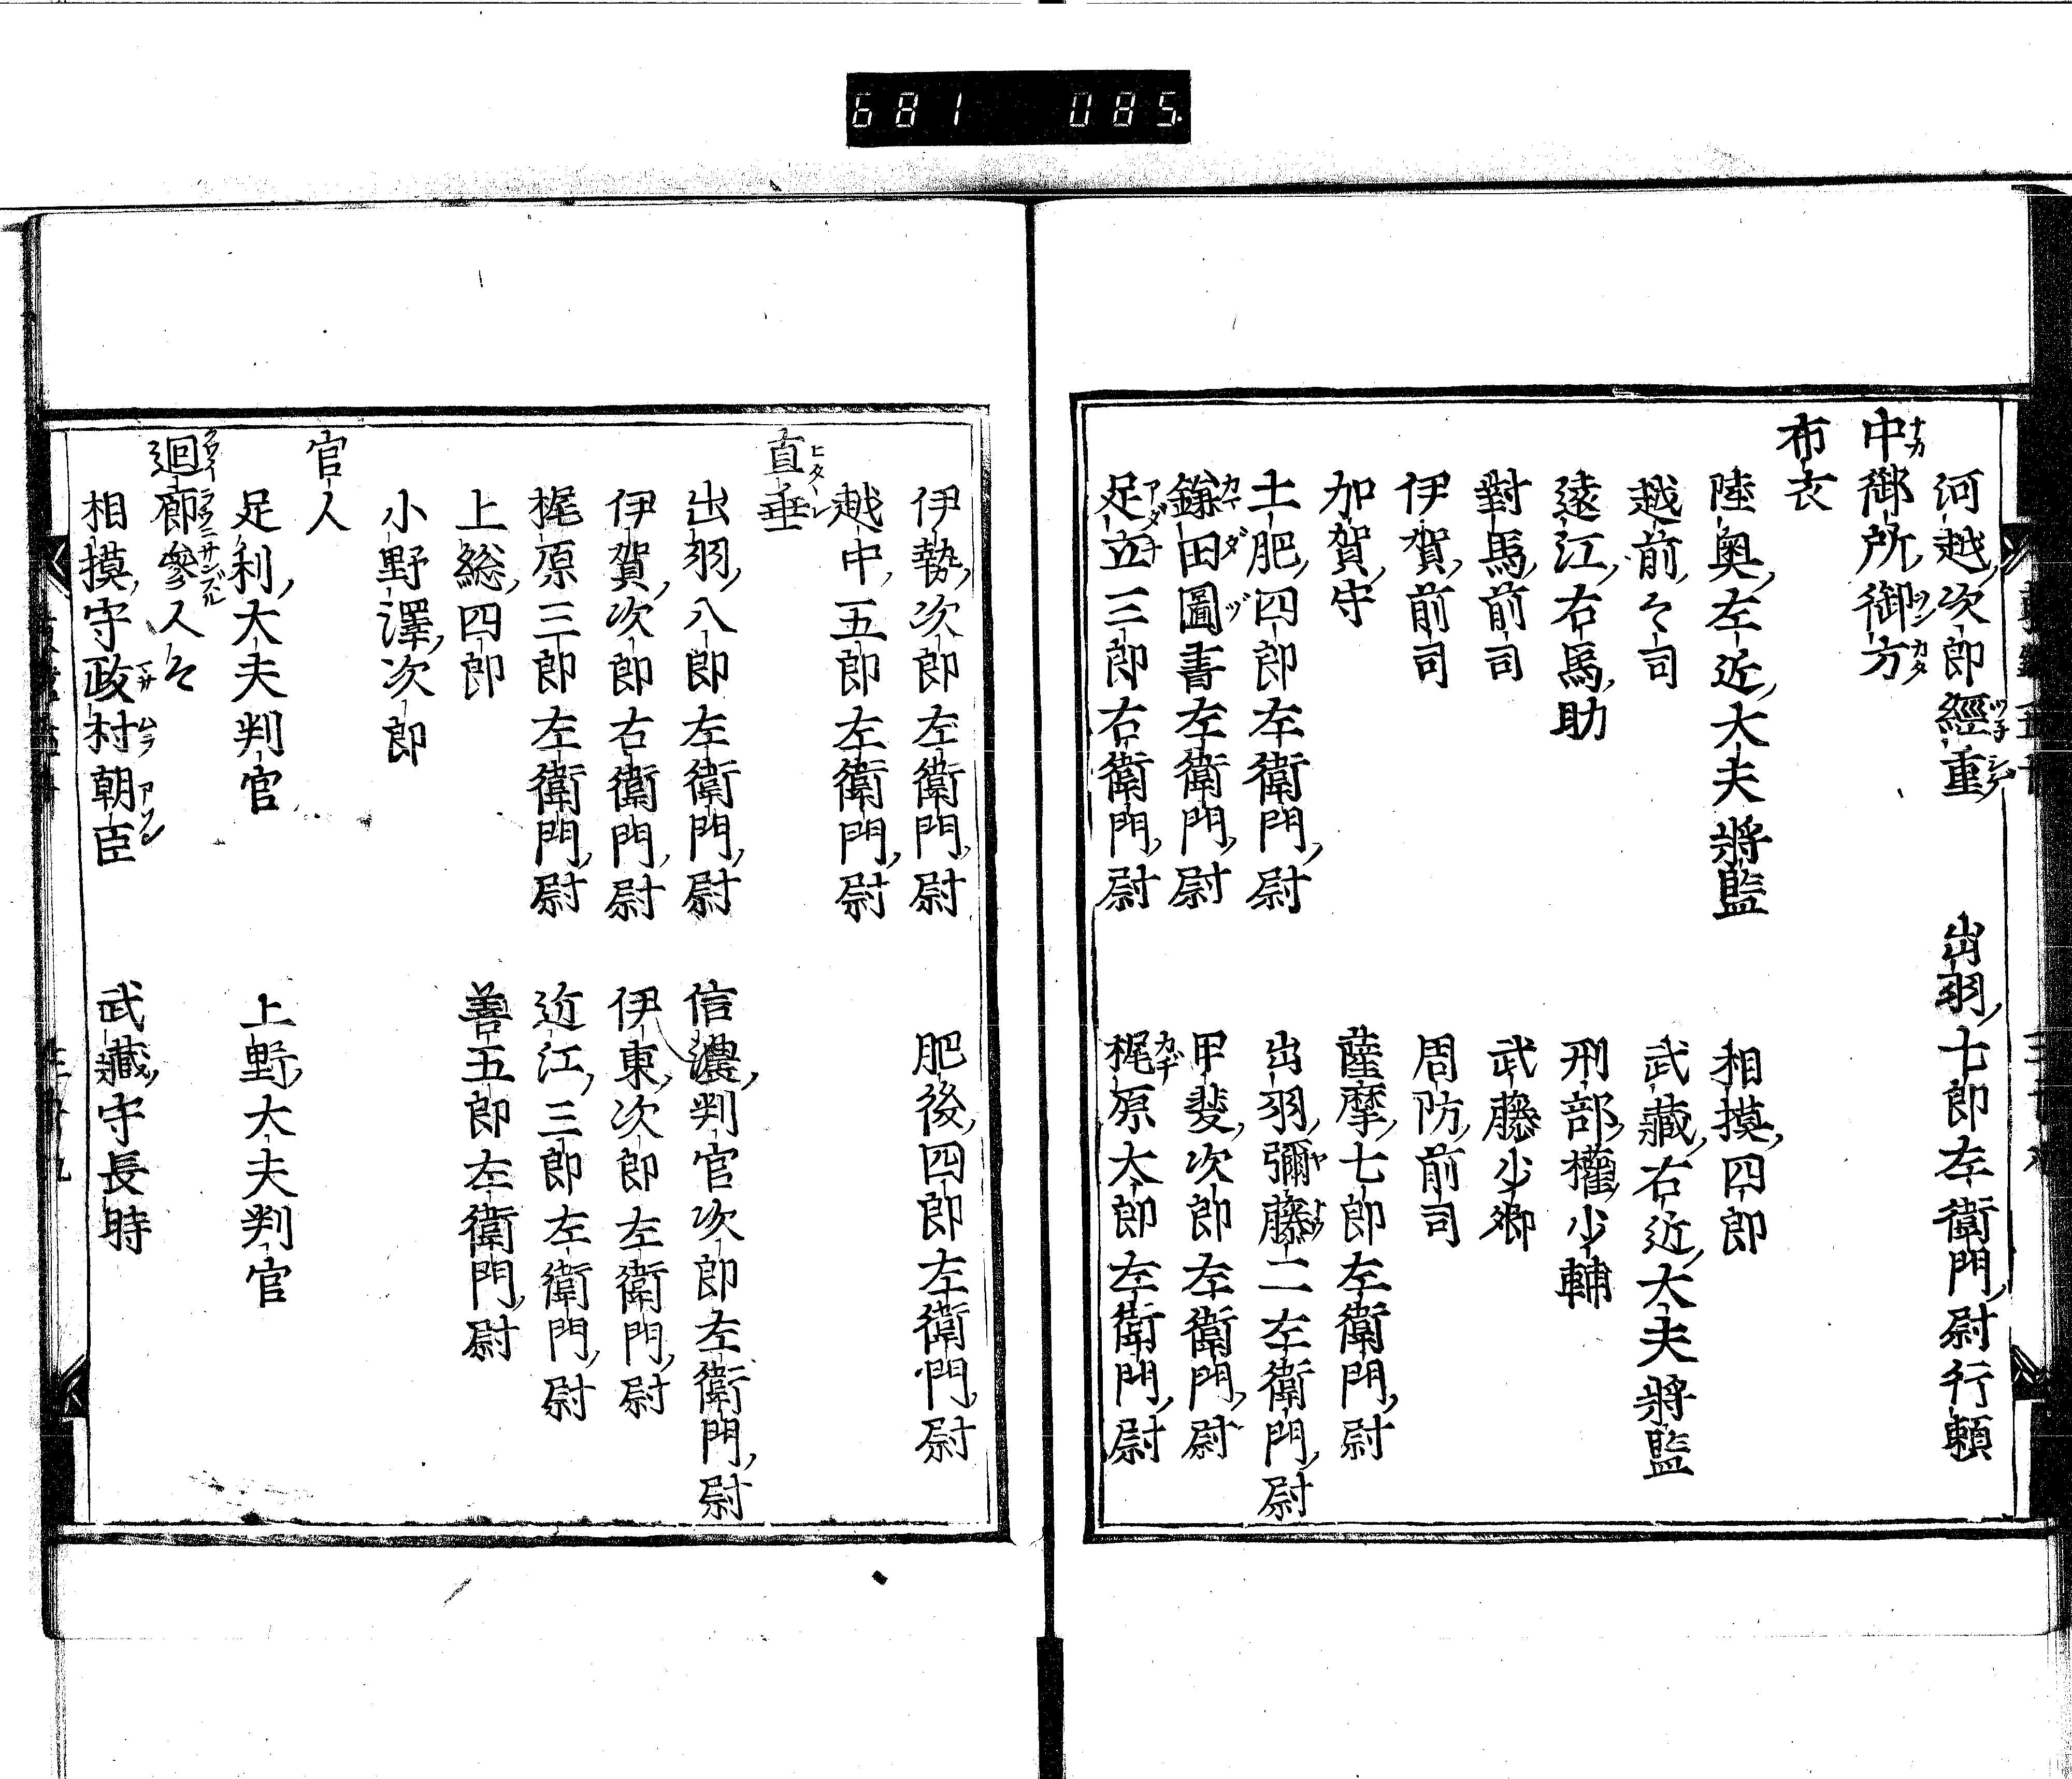 681 085
河越次郎經重 出羽七郎左衛門尉行頼
中御所御方
布衣
陸奥左近大夫將監 相摸四郎
越前々司 武藏右近大夫將監
遠江右馬助 刑部權少輔
對馬前司 武藤少卿
伊賀前司 周防前司
加賀守 薩摩七郎左衛門尉
土肥四郎左衛門尉 出羽彌藤二左衛門尉
鎌田圖書左衛門尉 甲斐次郎左衛門尉
足立三郎右衛門尉 梶原太郎左衛門尉
伊勢次郎左衛門尉 肥後四郎左衛門尉
越中五郎左衛門尉
直垂
出羽八郎左衛門尉 信濃判官次郎左衛門尉
伊賀次郎右衛門尉 伊東次郎左衛門尉
梶原三郎左衛門尉 近江三郎左衛門尉
上総四郎 善五郎左衛門尉
小野澤次郎
官人
足利大夫判官 上野大夫判官
迴廊參人々
相摸守政村朝臣 武藏守長時